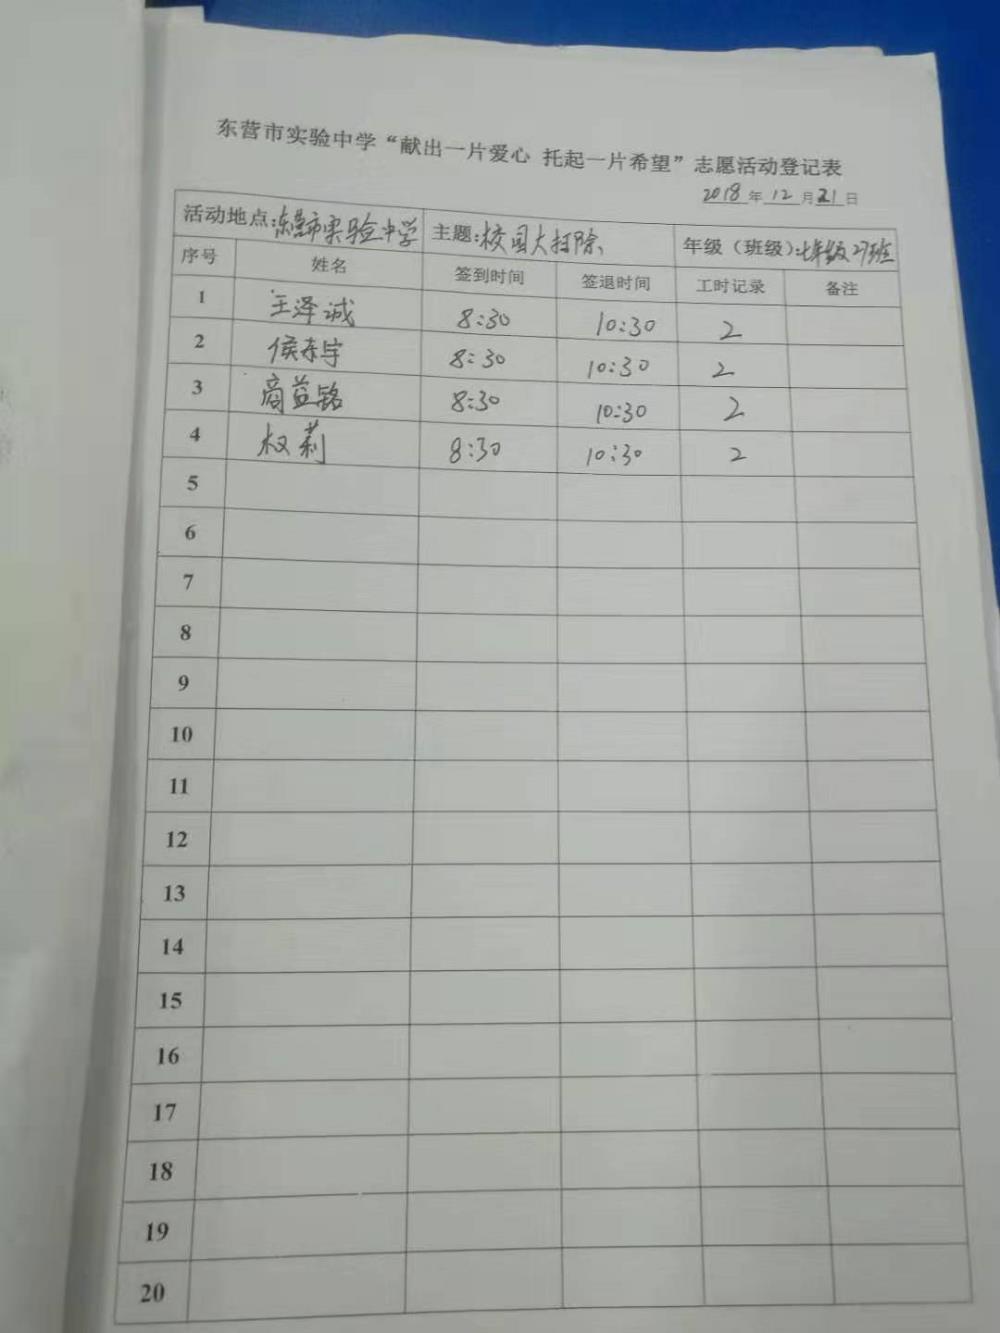 东营市实验中学“献出一片爱心 托起一片希望”志愿活动登记表
2018年12月21日
活动地点:东营市实验中学 主题:校园大扫除 年级（班级):七年级27班
序号 姓名 签到时间 签退时间 工时记录 备注
1 王泽诚 8:30 10:30 2
2 侯东宇 8:30 10:30 2
3 商益铭 8:30 10:30 2
4 权莉 8:30 10:30 2
5
6
7
8
9
10
11
12
13
14
15
16
17
18
19
20